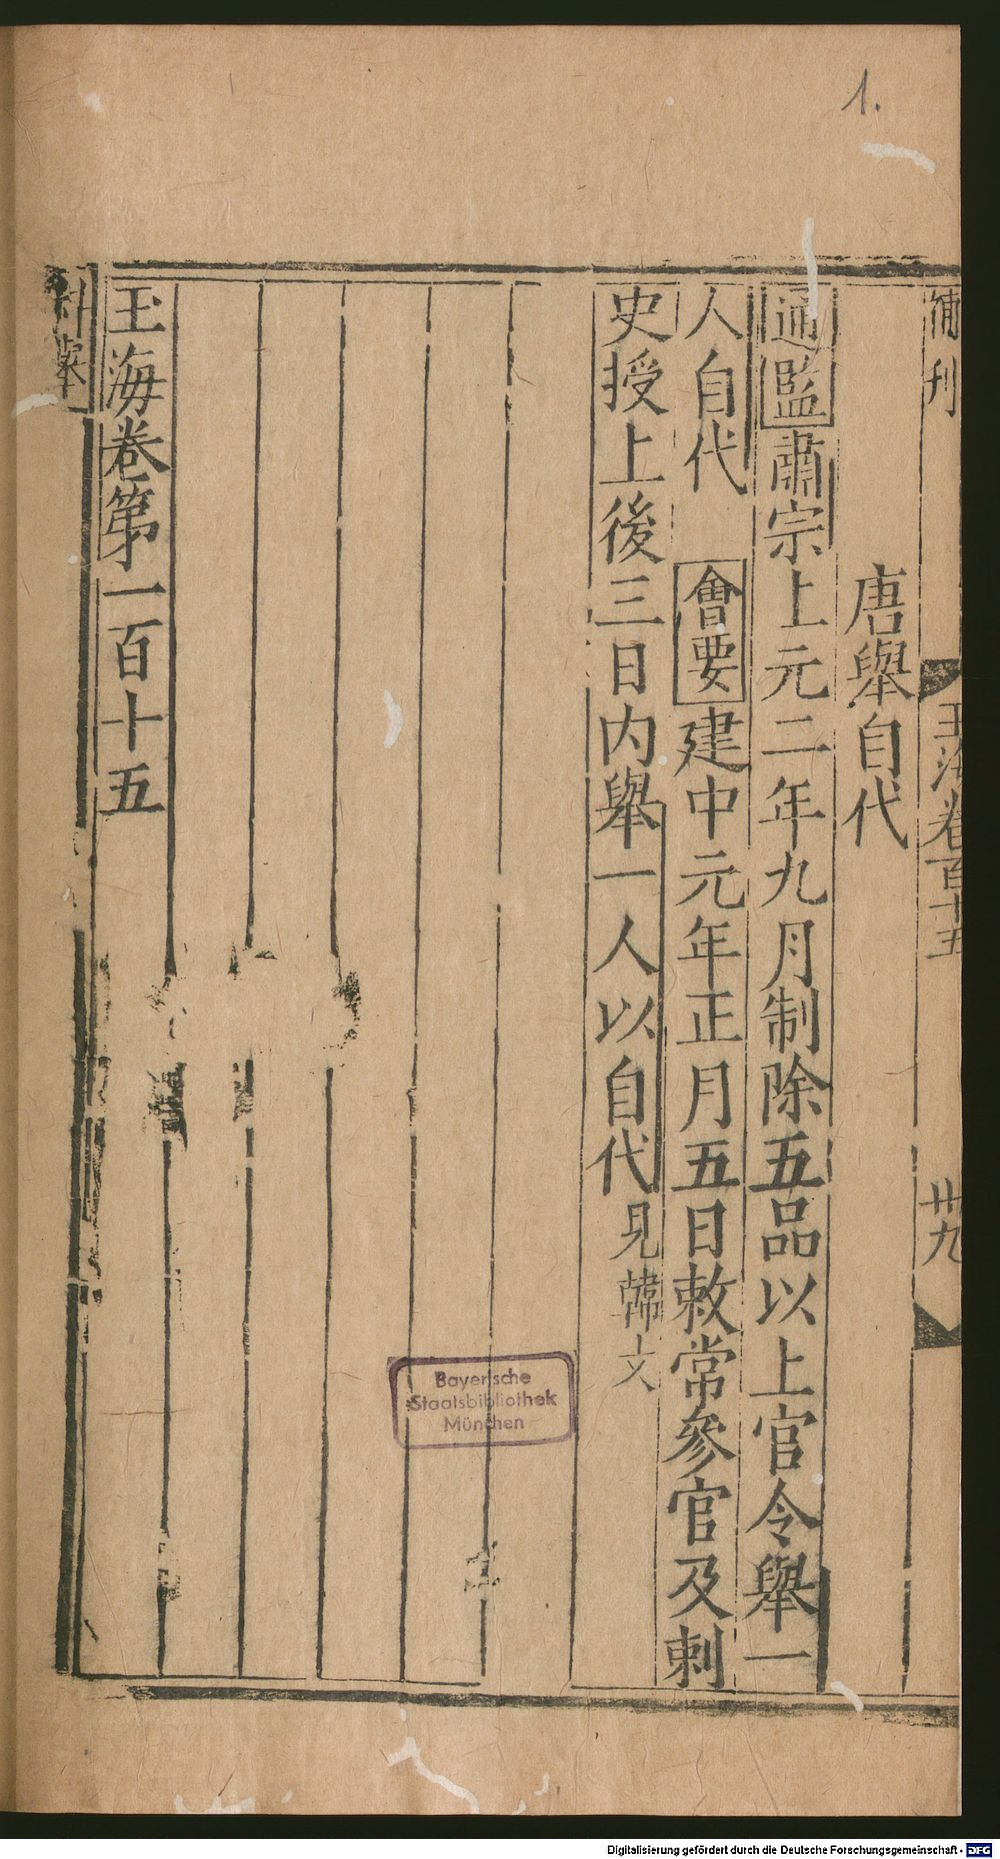 1.
補刊
玉海卷百十五
廿九
唐舉自代
通鑑肅宗上元二年九月制除五品以上官令舉一
人自代 會要建中元年正月五日敕常參官及刺
史授上後三日內舉一人以自代見韓文
玉海卷第一百十五
科舉
Bayerische
Staatsbibliothek
München
Digitalisierung gefördert durch die Deutsche Forschungsgemeinschaft - DFG